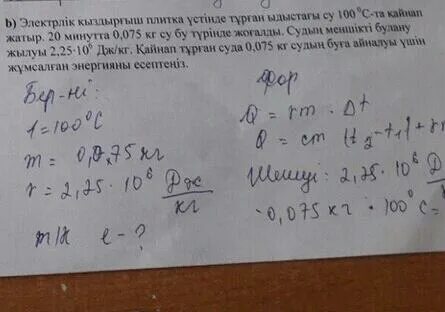 b) Электрлік қыздырғыш плитка үстінде тұрған ыдыстағы су 100 °С-та қайнап
жатыр. 20 минутта 0,075 кг су бу түрінде жоғалды. Судың меншікті булану
жылуы 2,25·10⁶ Дж/кг. Қайнап тұрған суда 0,075 кг судың буға айналуы үшін
жұмсалған энергияны есептеңіз.
Бер-ні:
t=100°C
m = 0,0.75 кг
r = 2,25 · 10⁶ Дж/кг
т/к е-?
фор
Q = rm · Δt
Q = cm (t₂-t₁)+r
Шешуі: 2,25·10⁶ Д
·0,075 кг · 100°C=